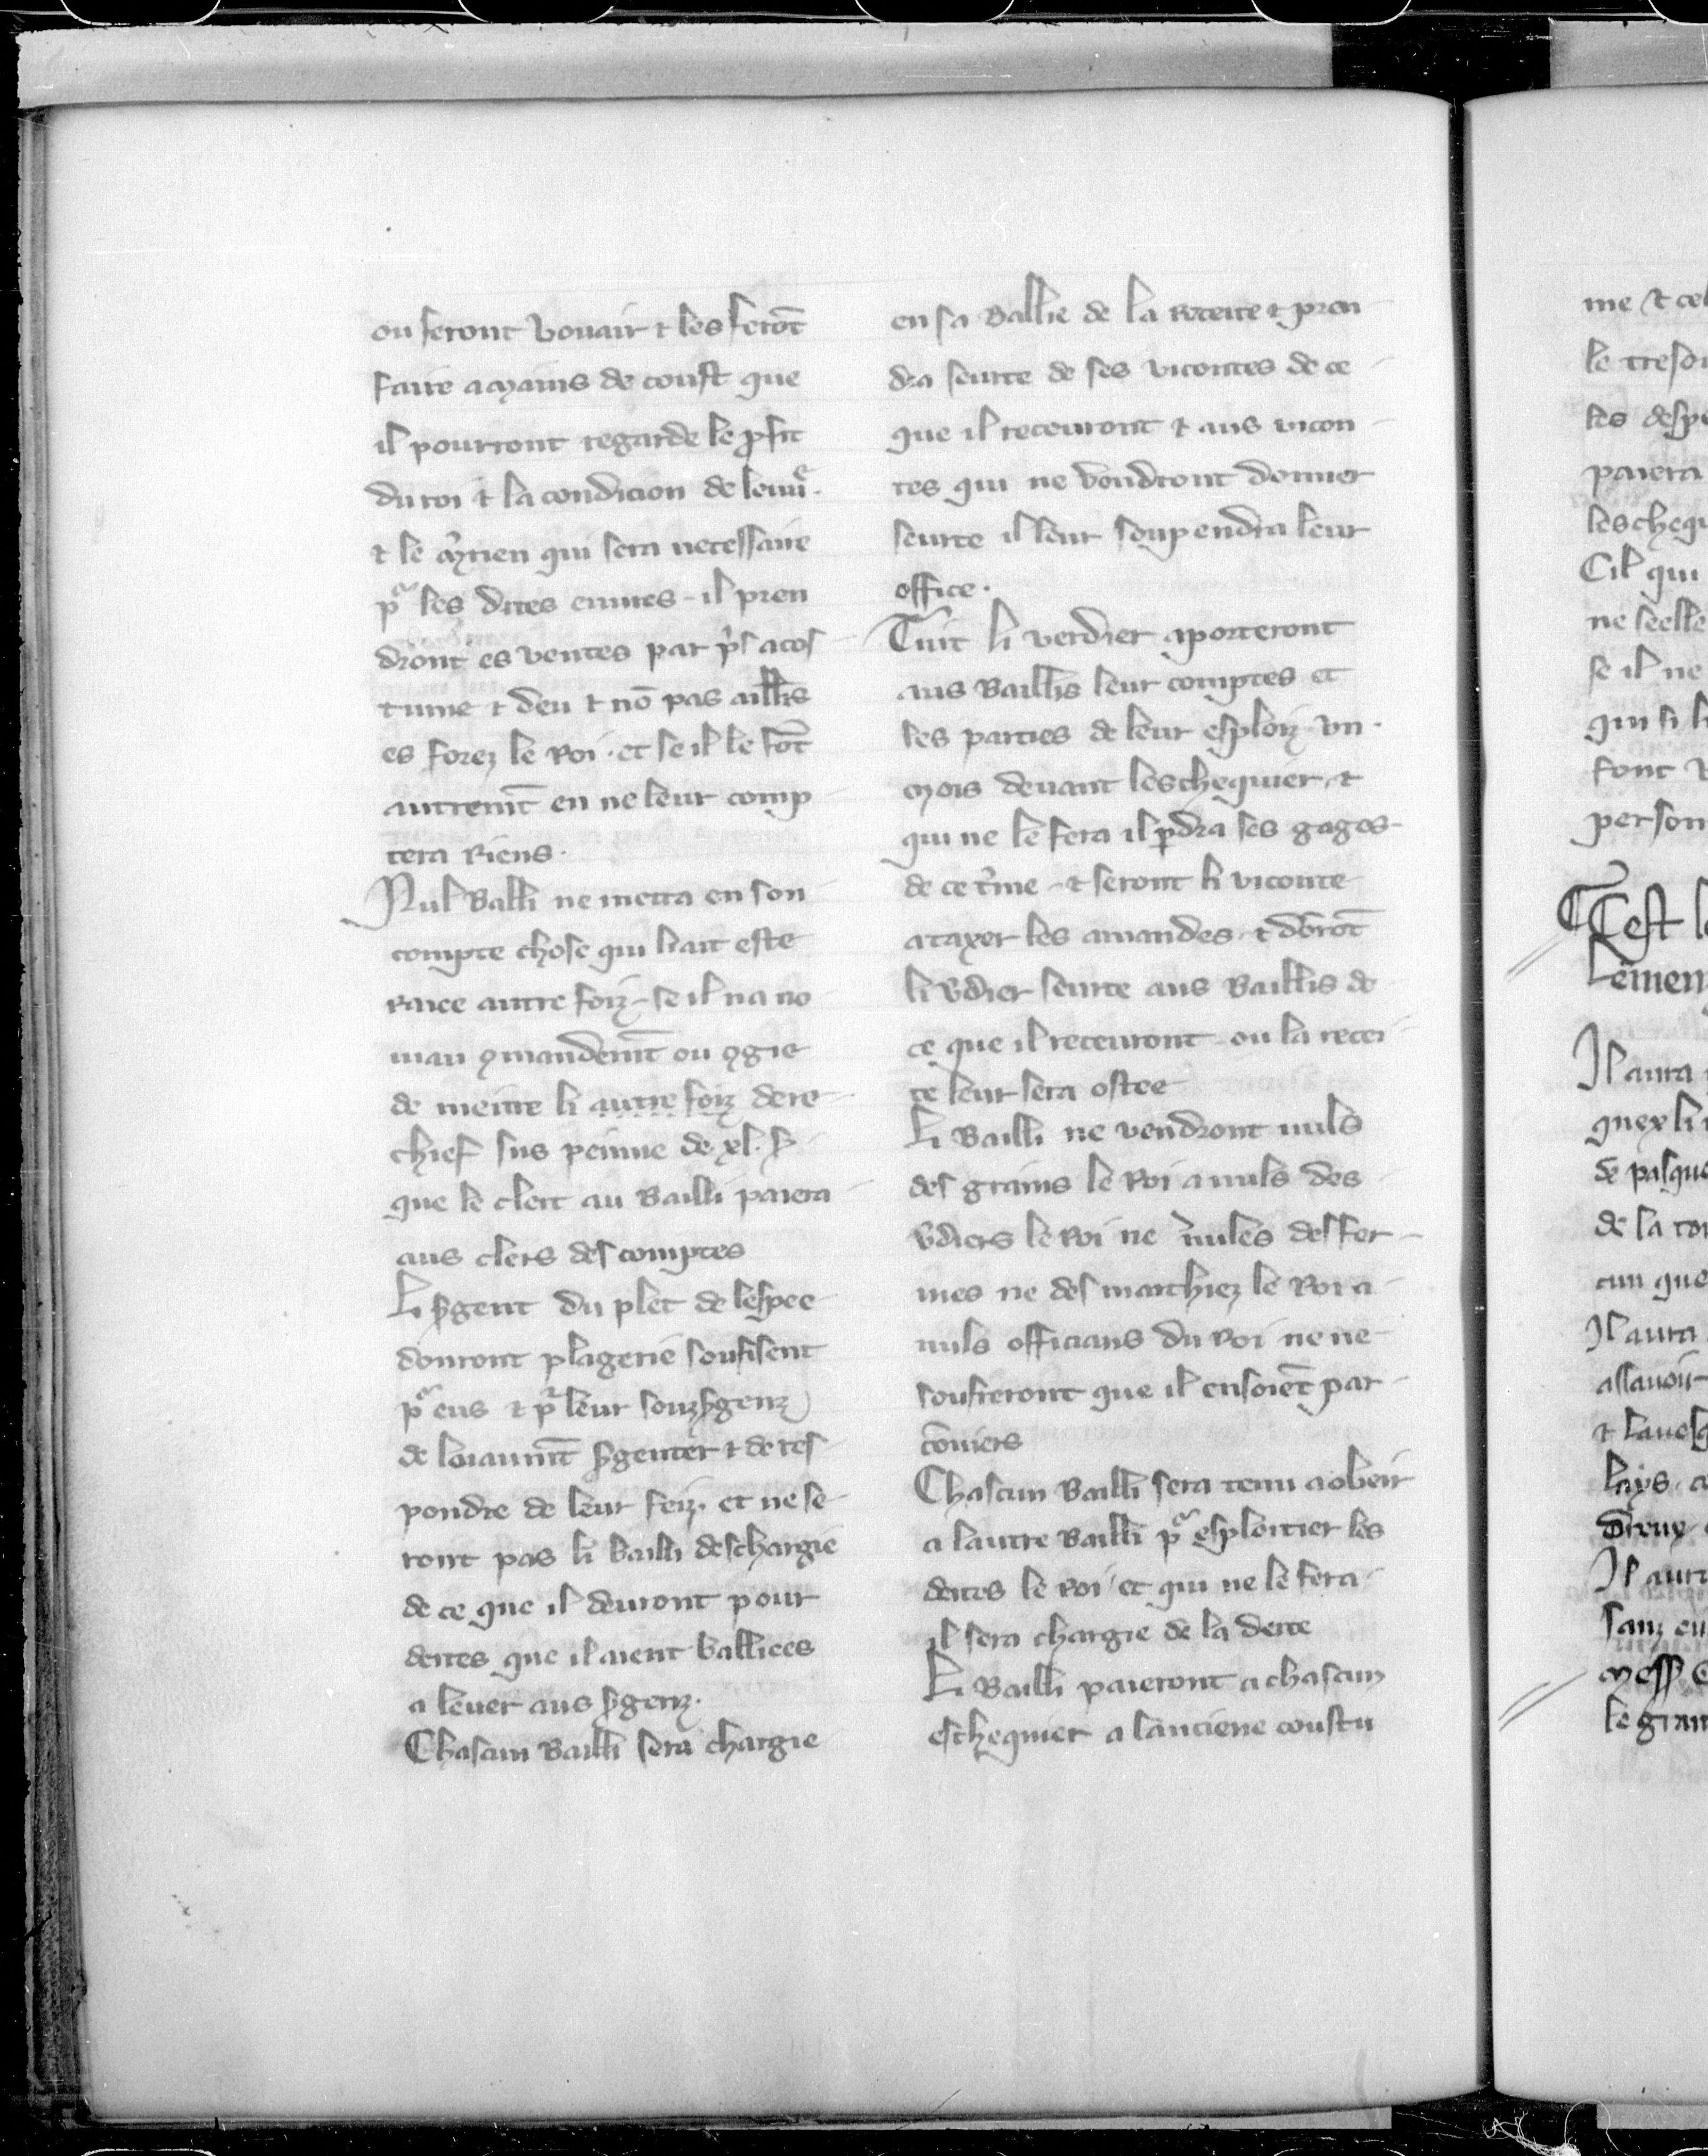 ou seront vouair ⁊ les ferōt
faire amains de coust que
il pourront regarde le ꝓfit
du roi ⁊ la condicion de leuuͤ·
⁊ le m̾rien qui sera necessaire
pͬ les dites euures - il pren
dront es ventes par p̾s acos
tume ⁊ deu ⁊ nō pas aill̄rs
es forez le Roi · et se il le fōt
autremt̄ en ne leur comp
tera Riens ·
Nul Balli ne metra en son
compte chose qui li ait este
raiee autre foiz - se il na no
uiau ꝯmandemt̄ ou ꝯgie
de meitre li autre foiz dere
chief sus peinne de · xl · s̄
que le clerc au Bailli paiera
aus clers des comptes
Li s̾gent du plet de lespee
donront plagerie soufisent
pͬ eus ⁊ pͬ leur souzs̾genz
de loiaumt̄ s̾genter ⁊ de res
pondre de leur feiz · et ne se
ront pas li bailli deschargie
de ce que il deuront pour
dettes que il aient baillices
a leuer aus s̾genz ·
Chascun Bailli sera chargie
en sa Ballie de la Recette ⁊ pren
dra seurte de ses vicontes de ce
que il receuront ⁊ aus vicon
tes qui ne voudront donner
seurte il leur soupendra leur
office ·
Tuit li verdier aporteront
aus Baillis leur comptes et
les parties de leur esploiz vn ·
mois deuant leschequier ⁊
qui ne le fera il ꝑdra ses gages
de ce t̾me - ⁊ seront li viconte
a taxer les amandes ⁊ dōrōt
li v̾dier seurte aus Baillis de
ce que il receuront ou la recei
te leur sera ostee
Li Bailli ne vendront nuls
des grains le Roi a nuls des
v̾diers le Roi ne nules des fer
mes ne des marchiez le Roi a
nuls officiaus du Roi ne ne
soufreront que il en soiēt par
conniers
Chascun Bailli sera tenu a obeir
a lautre Bailli pͬ esploitier les
dettes le Roi et qui ne le fera
il sera chargie de la dette
Li Bailli paieront a chascun
eschequier a lanciene coustu
me ⁊ cel
le tresor
les despe
paiera
leschequ
Cil qui
ne seelle
se il ne
qui si li
font
person
Cest l
Il aura
quex li
de pasque
de la
cun que
Il aura
assauoir
lays
Il aura
sanz
mess
le gran